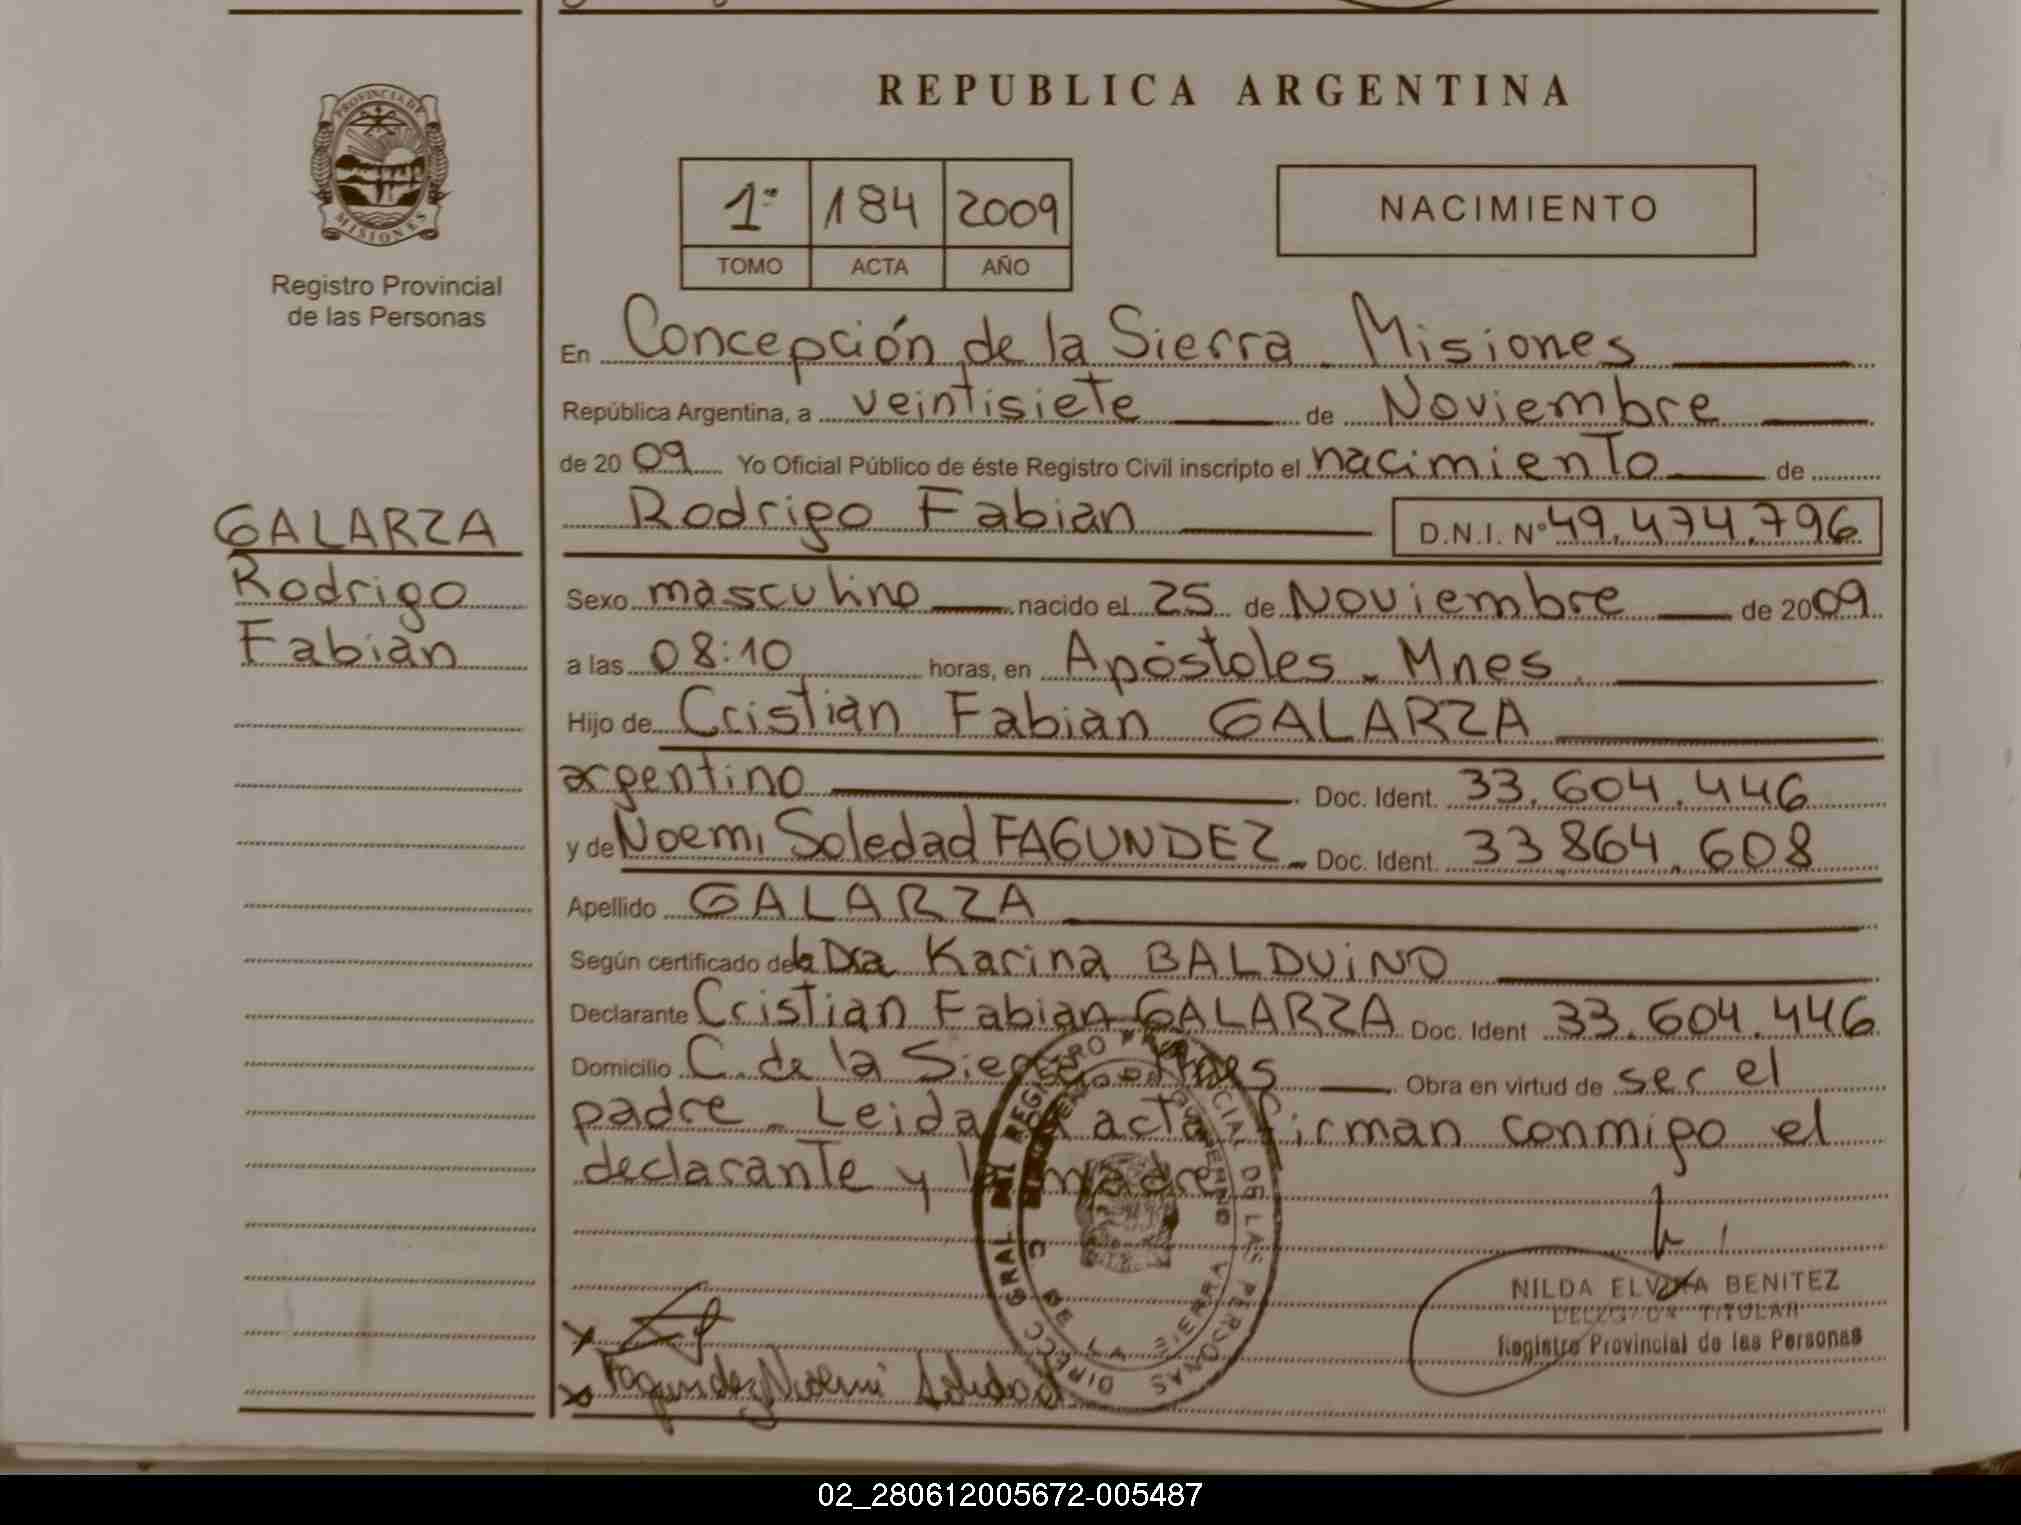 REPUBLICA ARGENTINA
PROVINCIA DE
MISIONES
Registro Provincial
de las Personas
1º 184 2009
TOMO ACTA AÑO
NACIMIENTO
En Concepción de la Sierra Misiones
República Argentina, a veintisiete de Noviembre
de 2009 Yo Oficial Público de éste Registro Civil inscripto el nacimiento de
Rodrigo Fabian D.N.I. Nº 49.474.796
GALARZA
Rodrigo
Fabian
Sexo masculino nacido el 25 de Noviembre de 2009
a las 08:10 horas, en Apóstoles. Mnes.
Hijo de Cristian Fabian GALARZA
argentino Doc. Ident. 33.604.446
y de Noemi Soledad FAGUNDEZ Doc. Ident. 33864.608
Apellido GALARZA
Según certificado de la Dra Karina BALDUiNO
Declarante Cristian Fabian GALARZA Doc. Ident 33.604.446
Domicilio C. de la Sierra Mnes Obra en virtud de ser el
padre - Leida el acta firman conmigo el
declarante y la madre
DIRECC GRAL DEL REGISTRO PROVINCIAL DE LAS PERSONAS
C DE LA SIERRA
NILDA ELVIRA BENITEZ
DELEGADA TITULAR
Registro Provincial de las Personas
Fagundez Noemi Soledad
02_280612005672-005487